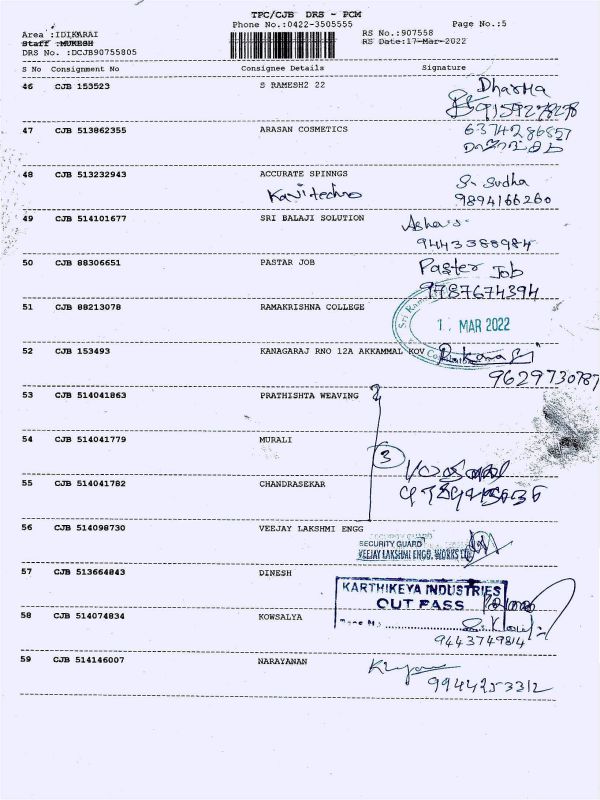 TPC/CJB DRS - PCM
Phone No.:0422-3505555 Page No.:5
Area :IDIKARAI RS No.:907558
Staff :MUKESH RS Date:17-Mar-2022
DRS No. :DCJB90755805
S No Consignment No Consignee Details Signature
46 CJB 153523 S RAMESH2 22 Dharma
9159278298
47 CJB 513862355 ARASAN COSMETICS 6374286857
48 CJB 513232943 ACCURATE SPINNGS S. Sudha
Kavi techno 9894166260
49 CJB 514101677 SRI BALAJI SOLUTION Asha
9443388984
50 CJB 88306651 PASTAR JOB Paster Job
9787674394
51 CJB 88213078 RAMAKRISHNA COLLEGE
MAR 2022
52 CJB 153493 KANAGARAJ RNO 12A AKKAMMAL KOV
9629730787
53 CJB 514041863 PRATHISHTA WEAVING
54 CJB 514041779 MURALI
3
55 CJB 514041782 CHANDRASEKAR
56 CJB 514098730 VEEJAY LAKSHMI ENGG
SECURITY GUARD
VEEJAY LAKSHMI ENGG. WORKS
57 CJB 513664843 DINESH
KARTHIKEYA INDUSTRIES
OUT PASS
58 CJB 514074834 KOWSALYA
9443749814
59 CJB 514146007 NARAYANAN
9944253312